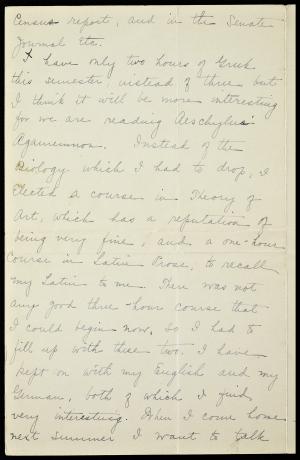 Census report, and in the Senate
Journal etc.
I have only two hours of Greek
this semester, instead of three but
I think it will be more interesting
for we are reading Aeschylus'
Agamemnon. Instead of the
Biology which I had to drop, I
elected a course in Theory of
Art, which has a reputation of
being very fine, and a one-hour
course in Latin Prose, to recall
my Latin to me. There was not
any good three-hour course that
I could begin now, so I had to
fill up with these two. I have
kept on with my English and my
German, both of which I find
very interesting. When I come home
next summer I want to talk